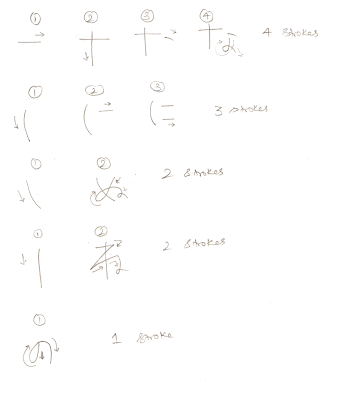 ① ② ③ ④ 4 strokes
① ② ③ 3 strokes
① ② 2 strokes
① ② 2 strokes
① 1 stroke